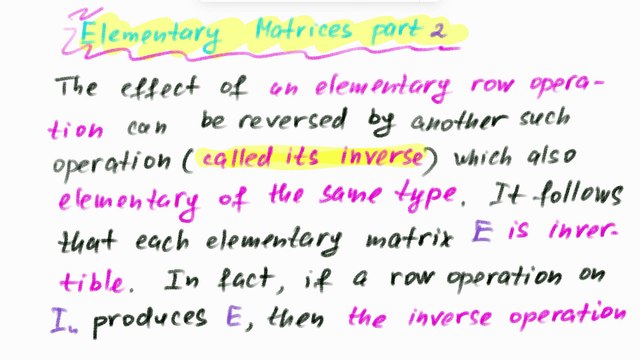 Elementary Matrices part 2
The effect of an elementary row opera-
tion can be reversed by another such
operation (called its inverse) which also
elementary of the same type. It follows
that each elementary matrix E is inver-
tible. In fact, if a row operation on
In produces E, then the inverse operation